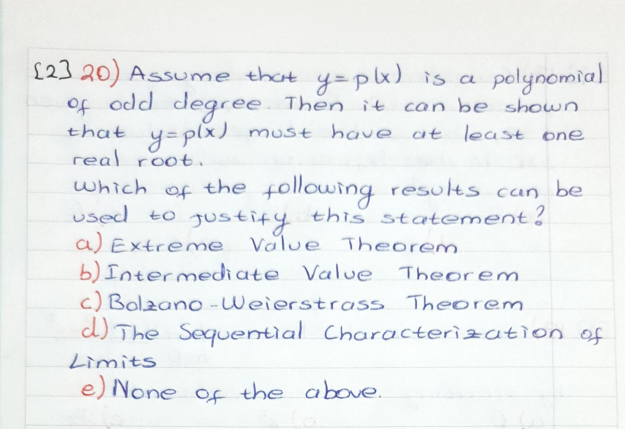 [2] 20) Assume that y=p(x) is a polynomial
of odd degree. Then it can be shown
that y=p(x) must have at least one
real root.
Which of the following results can be
used to justify this statement?
a) Extreme Value Theorem
b) Intermediate Value Theorem
c) Bolzano-Weierstrass Theorem
d) The Sequential Characterization of
Limits
e) None of the above.